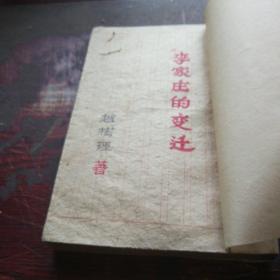 李家庄的变迁
赵树理
著